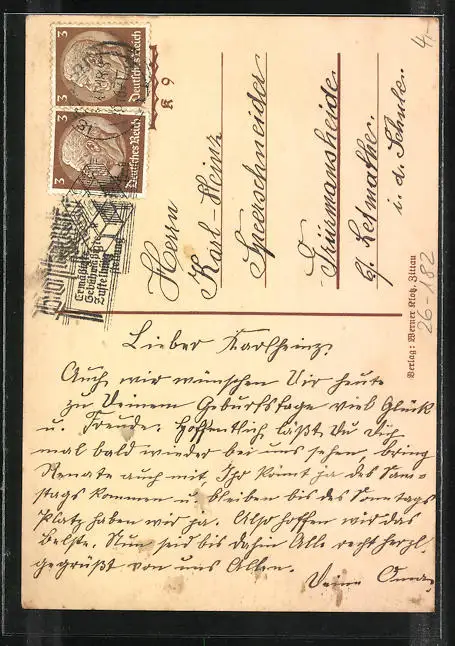 3
Deutsches Reich
3
Deutsches Reich
K 9
4,-
Herrn
Karl-Heinz
Speerschneider
Grürmansheide
b/ Letmathe.
i. d. Schulen.
Ermäßigte
Gebühren für
Zustellung
Verlag: Werner Klotz, Zittau
26-182
Lieber Karlheinz.
Auch wir wünschen Dir heute
zu Deinem Geburtstage viel Glück
u. Freude. Hoffentlich läßt Du Dich
mal bald wieder bei uns sehen, bring
Renate auch mit. Ihr könnt ja des Sam-
stags kommen u. bleiben bis des Sonntags
Platz haben wir ja. Also hoffen wir das
beste. Nun seid bis dahin Alle recht herzl.
gegrüßt von uns Allen.
Deine Oma